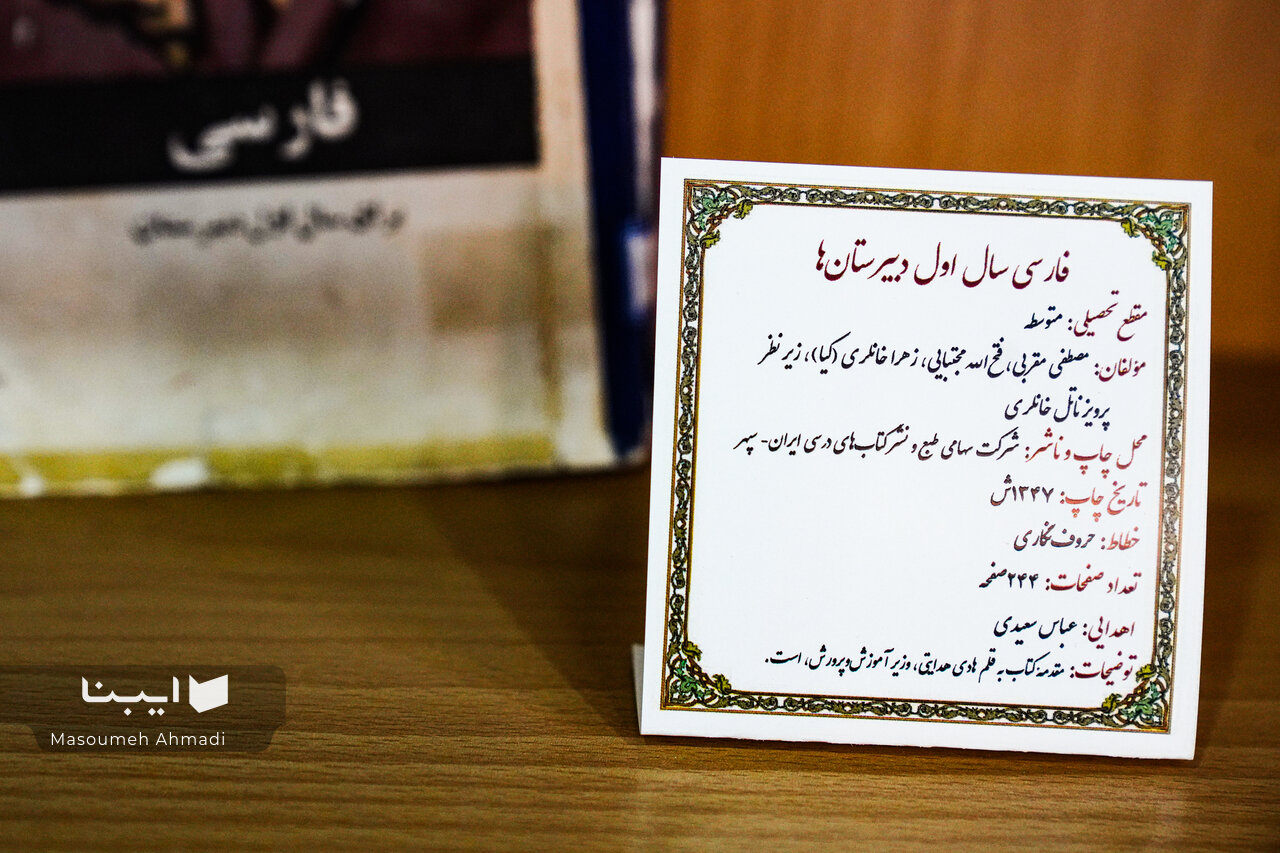 فارسی
برای سال اول دبیرستان
فارسی سال اول دبیرستان‌ها
مقطع تحصیلی: متوسطه
مؤلفان: مصطفی مقربی، فتح‌الله مجتبایی، زهرا خانلری (کیا)، زیر نظر
پرویز ناتل خانلری
محل چاپ و ناشر: شرکت سهامی طبع و نشر کتاب‌های درسی ایران- سپهر
تاریخ چاپ: ۱۳۴۷ش
خطاط: حروف‌نگاری
تعداد صفحات: ۲۴۴صفحه
اهدایی: عباس سعیدی
توضیحات: مقدمه کتاب به قلم هادی هدایتی، وزیر آموزش‌وپرورش، است.
ایبنا
Masoumeh Ahmadi